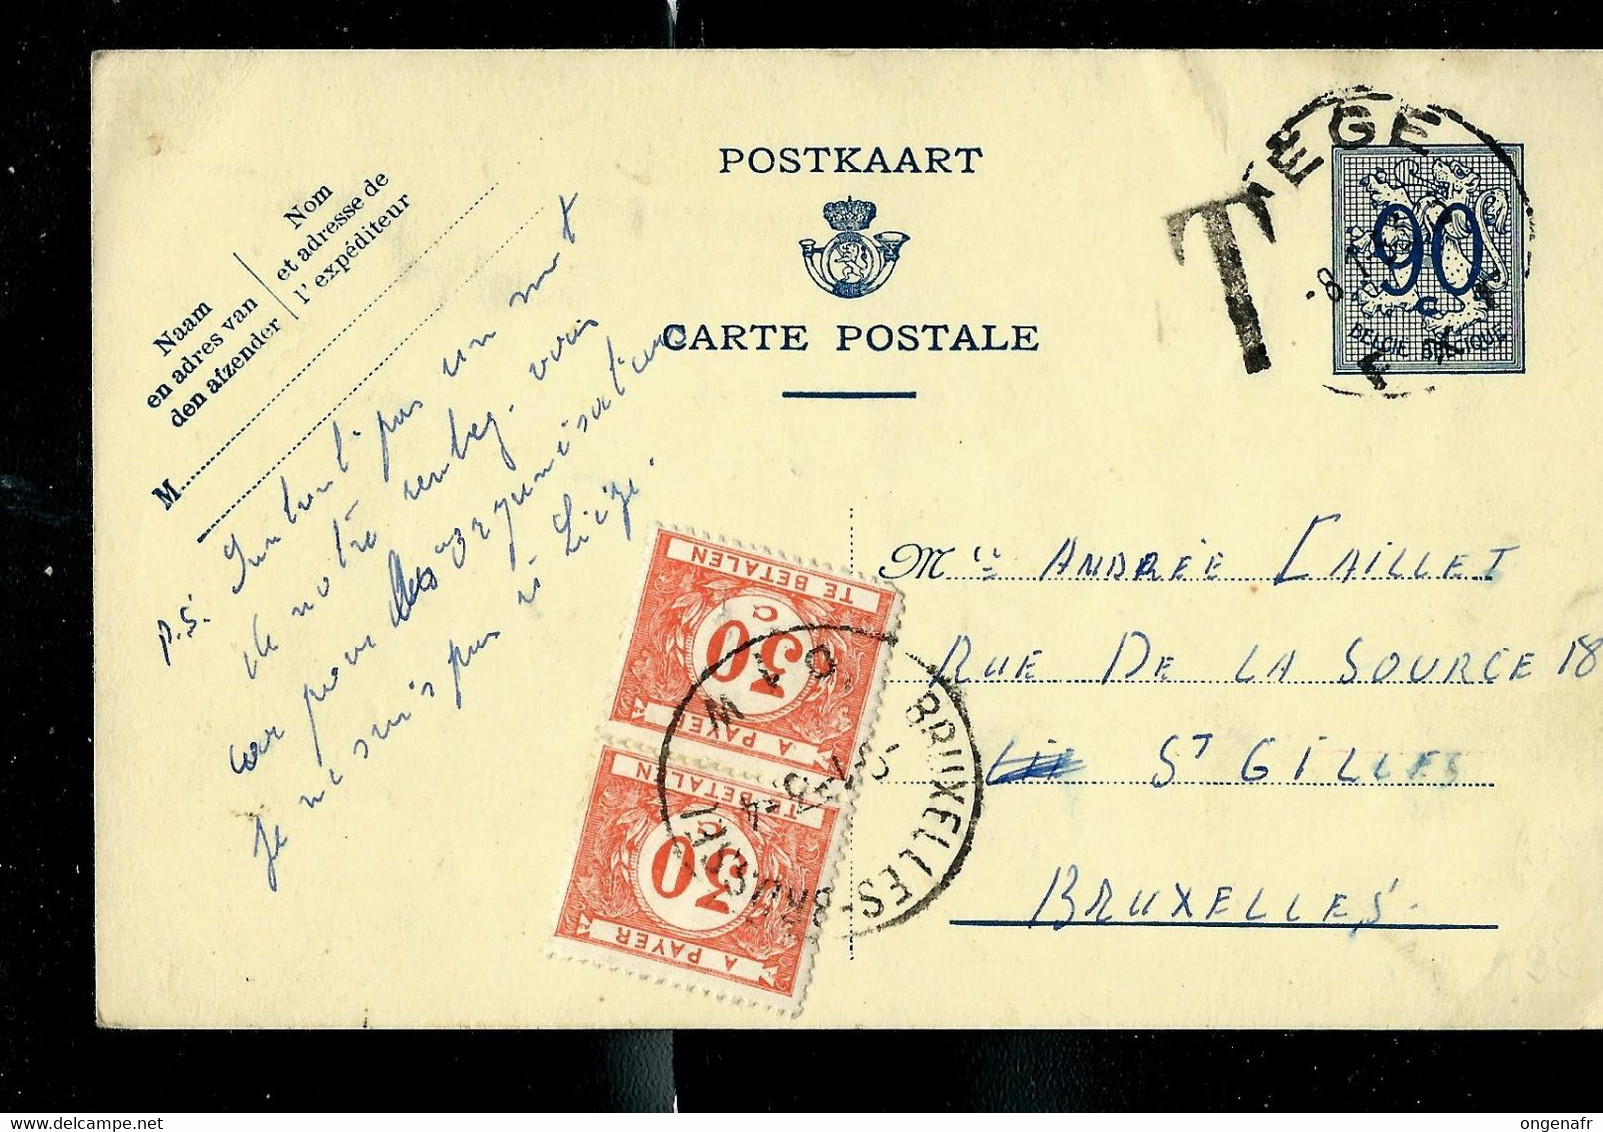 POSTKAART
CARTE POSTALE
Naam
en adres van
den afzender
Nom
et adresse de
l'expéditeur
M
T
90
c
BELGIE BELGIQUE
P.S. Surtout pas un mot
de notre
vous
car pour
organisations
je ne suis pas à Liège.
TE BETALEN
30
C
A PAYER
TE BETALEN
30
C
A PAYER
BRUXELLES-
BRUSSEL
Mlle ANDRÉE CAILLET
RUE DE LA SOURCE 18
ST GILLES
BRUXELLES.
www.delcampe.net
ongenafr